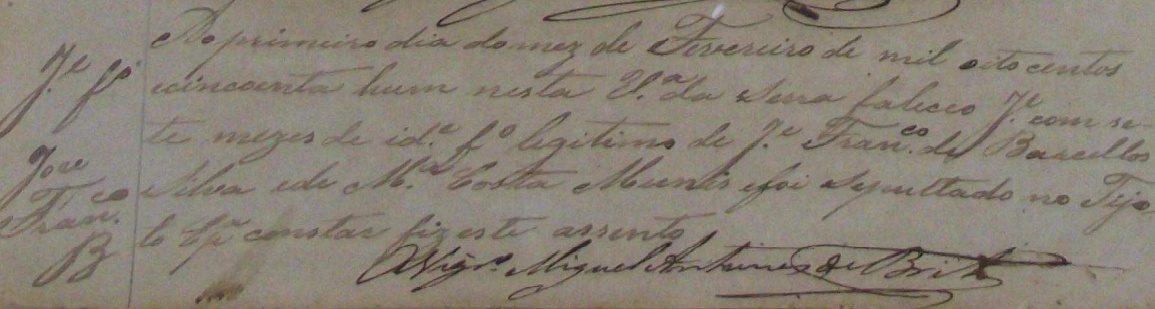 J.e fo
Jose
Fran.co
B
Ao primeiro dia do mez de Fevereiro de mil oitocentos
ecincoenta hum nesta V.a da Serra faleceo J.e com se-
te mezes de id.e fo legitimo de J.e Fran.co de Barcellos
Silva ede M.a Costa Munis efoi sepultado no Tijo
lo Epa constar fiz este assento
O Vigro. Miguel Antunes de Brito